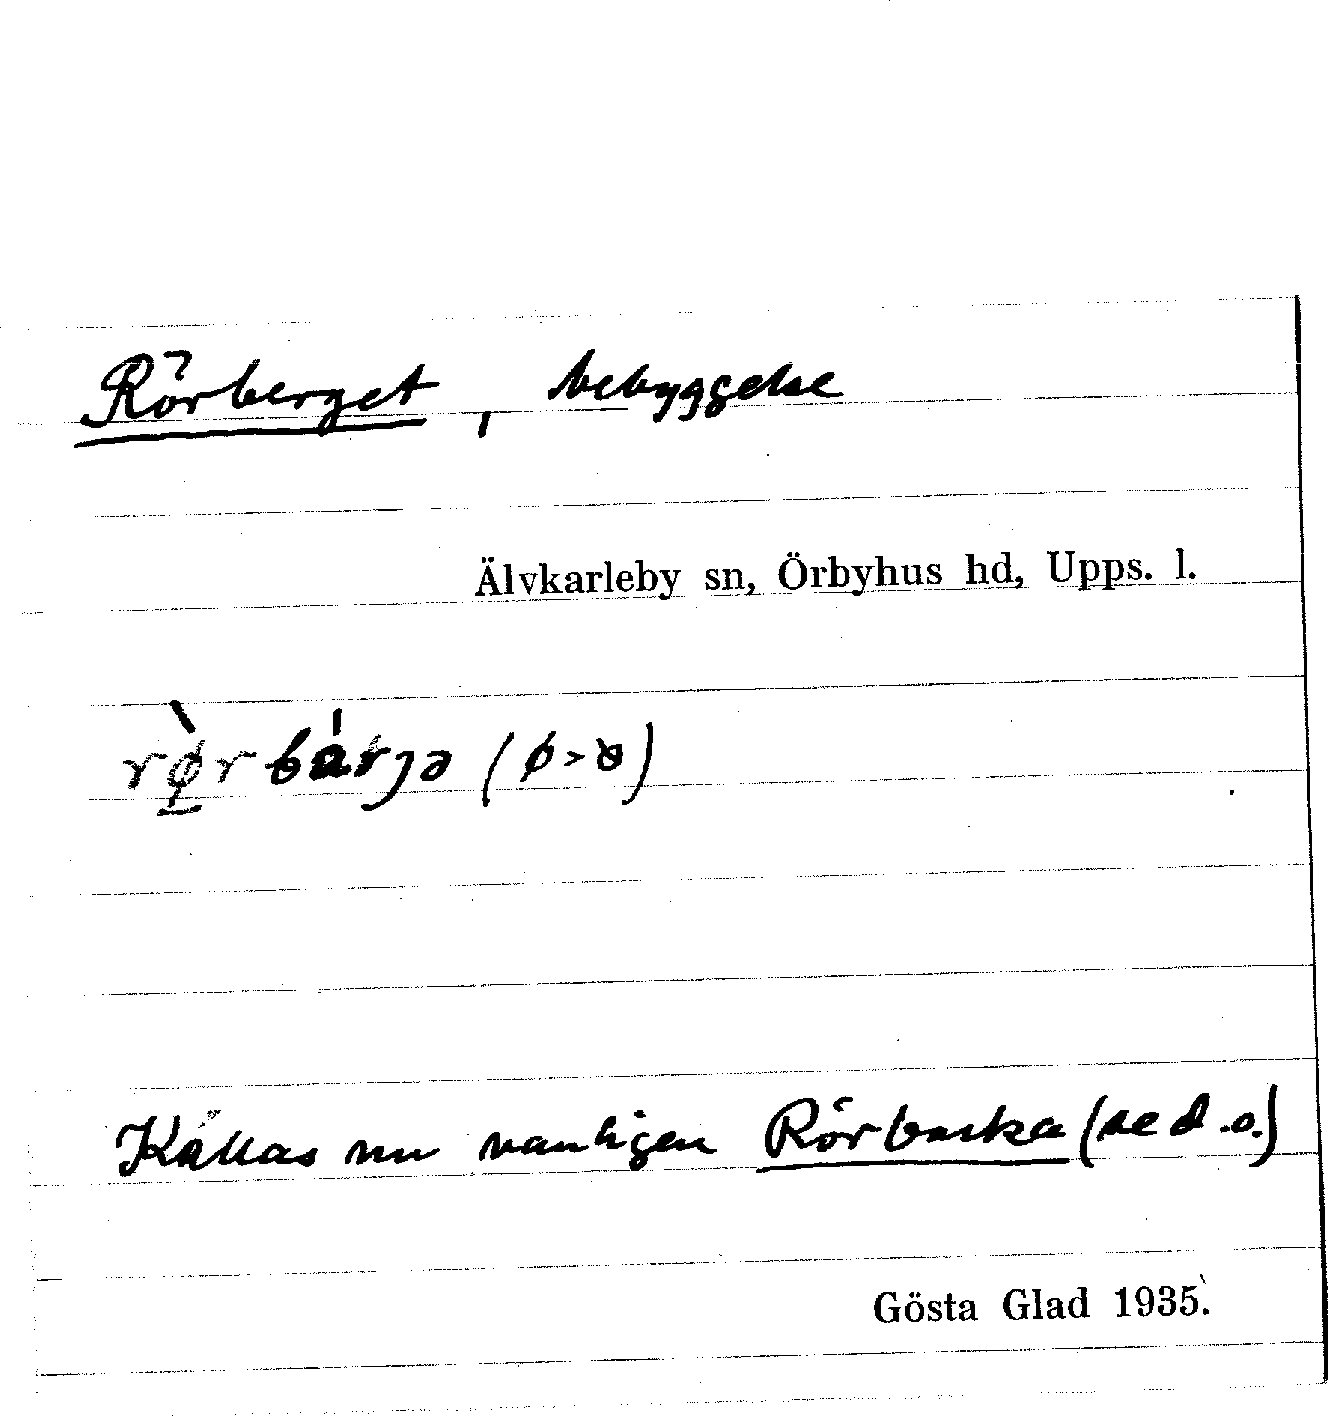 Rörberget, bebyggelse
Älvkarleby sn, Örbyhus hd, Upps. l.
rø̀rbárjə (ø>ɞ)
Kallas nu vanligen Rörbaska (se d.o.)
Gösta Glad 1935.